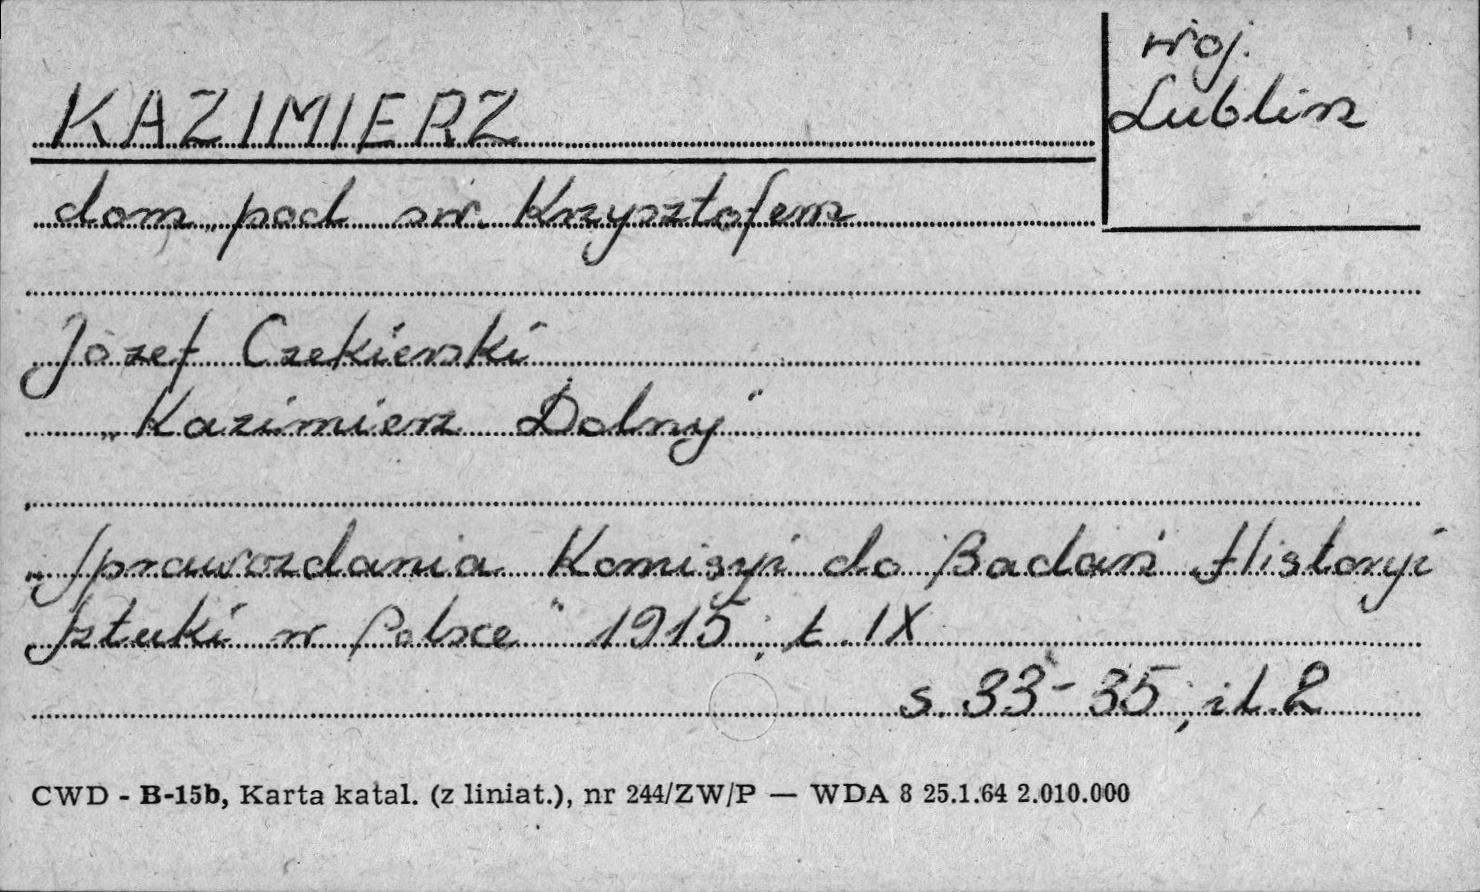 KAZIMIERZ
woj.
Lublin
dom „pod św. Krzysztofem
Józef Czekierski
„Kazimierz Dolny"
„Sprawozdania Komisyi do Badań Historyi
Sztuki w Polsce" 1915, t. IX
s. 33-35, il. 2
CWD - B-15b, Karta katal. (z liniat.), nr 244/ZW/P — WDA 8 25.1.64 2.010.000